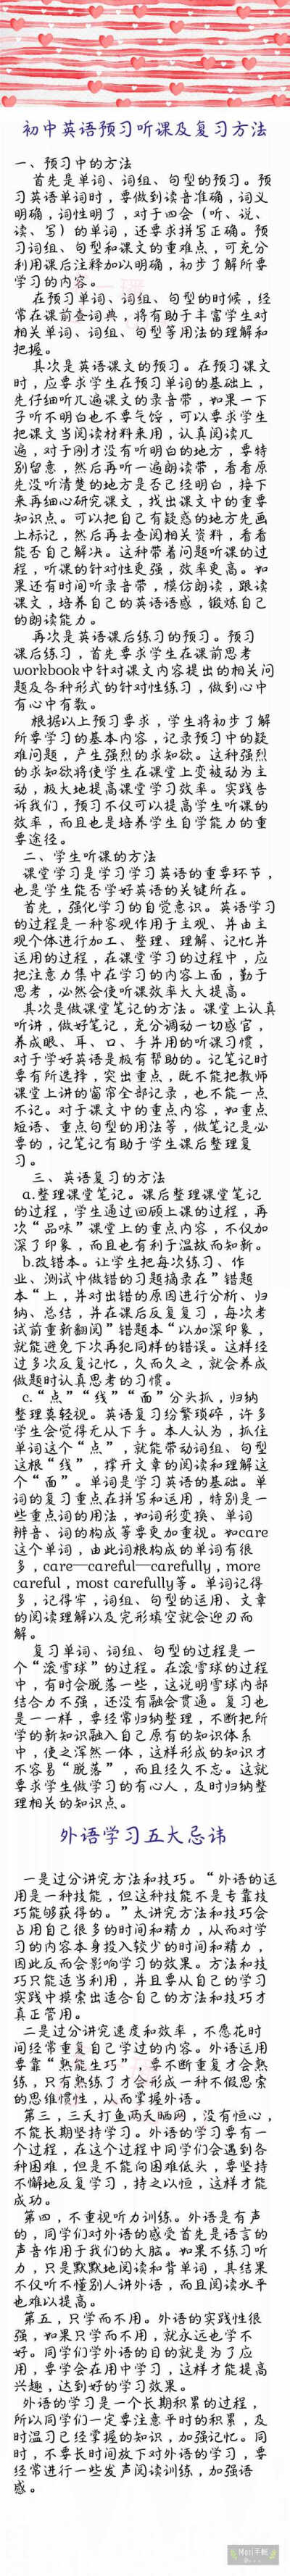 初中英语预习听课及复习方法
一、预习中的方法
首先是单词、词组、句型的预习。预
习英语单词时，要做到读音准确，词义
明确，词性明了，对于四会（听、说、
读、写）的单词，还要求拼写正确。预
习词组、句型和课文的重难点，可充分
利用课后注释加以明确，初步了解所要
学习的内容。
在预习单词、词组、句型的时候，经
常在课前查词典，将有助于丰富学生对
相关单词、词组、句型等用法的理解和
把握。
其次是英语课文的预习。在预习课文
时，应要求学生在预习单词的基础上，
先仔细听几遍课文的录音带，如果一下
子听不明白也不要气馁，可以要求学生
把课文当阅读材料来用，认真阅读几
遍，对于刚才没有听明白的地方，要特
别留意，然后再听一遍朗读带，看看原
先没听清楚的地方是否已经明白，接下
来再细心研究课文，找出课文中的重要
知识点。可以把自己有疑惑的地方先画
上标记，然后再去查阅相关资料，看看
能否自己解决。这种带着问题听课的过
程，听课的针对性更强，效率更高。如
果还有时间听录音带，模仿朗读，跟读
课文，培养自己的英语语感，锻炼自己
的朗读能力。
再次是英语课后练习的预习。预习
课后练习，首先要求学生在课前思考
workbook中针对课文内容提出的相关问
题及各种形式的针对性练习，做到心中
有心中有数。
根据以上预习要求，学生将初步了解
所要学习的基本内容，记录预习中的疑
难问题，产生强烈的求知欲。这种强烈
的求知欲将使学生在课堂上变被动为主
动，极大地提高课堂学习效率。实践告
诉我们，预习不仅可以提高学生听课的
效率，而且也是培养学生自学能力的重
要途径。
二、学生听课的方法
课堂学习是学习学习英语的重要环节，
也是学生能否学好英语的关键所在。
首先，强化学习的自觉意识。英语学习
的过程是一种客观作用于主观、并由主
观个体进行加工、整理、理解、记忆并
运用的过程，在课堂学习的过程中，应
把注意力集中在学习的内容上面，勤于
思考，必然会使听课效率大大提高。
其次是做课堂笔记的方法。课堂上认真
听讲，做好笔记，充分调动一切感官，
养成眼、耳、口、手并用的听课习惯，
对于学好英语是极有帮助的。记笔记时
要有所选择，突出重点，既不能把教师
课堂上讲的窗帘全部记录，也不能一点
不记。对于课文中的重点内容，如重点
短语、重点句型的用法等，做笔记是必
要的，记笔记有助于学生课后整理复
习。
三、英语复习的方法
a.整理课堂笔记。课后整理课堂笔记
的过程，学生通过回顾上课的过程，再
次“品味”课堂上的重点内容，不仅加
深了印象，而且也有利于温故而知新。
b.改错本。让学生把每次练习、作
业、测试中做错的习题摘录在”错题
本“上，并对出错的原因进行分析、归
纳、总结，并在课后反复复习，每次考
试前重新翻阅”错题本“以加深印象，
就能避免下次再犯同样的错误。这样经
过多次反复记忆，久而久之，就会养成
做题时认真思考的习惯。
c.“点”“线”“面”分头抓，归纳
整理莫轻视。英语复习纷繁琐碎，许多
学生会觉得无从下手。本人认为，抓住
单词这个“点”，就能带动词组、句型
这根“线”，撑开文章的阅读和理解这
个“面”。单词是学习英语的基础。单
词的复习重点在拼写和运用，特别是一
些重点词的用法，如词形变换、单词
辨音、词的构成等要更加重视。如care
这个单词，由此词根构成的单词有很
多，care—careful—carefully，more
careful，most carefully等。单词记得
多，记得牢，词组、句型的运用、文章
的阅读理解以及完形填空就会迎刃而
解。
复习单词、词组、句型的过程是一
个“滚雪球”的过程。在滚雪球的过程
中，有时会脱落一些，这说明雪球内部
结合力不强，还没有融会贯通。复习也
是一一样，要经常归纳整理，不断把所
学的新知识融入自己原有的知识体系
中，使之浑然一体，这样形成的知识才
不容易“脱落”，而且经久不忘。这就
要求学生做学习的有心人，及时归纳整
理相关的知识点。
外语学习五大忌讳
一是过分讲究方法和技巧。“外语的运
用是一种技能，但这种技能不是专靠技
巧能够获得的。”太讲究方法和技巧会
占用自己很多的时间和精力，从而对学
习的内容本身投入较少的时间和精力，
因此反而会影响学习的效果。方法和技
巧只能适当利用，并且要从自己的学习
实践中摸索出适合自己的方法和技巧才
真正管用。
二是过分讲究速度和效率，不愿花时
间经常重复自己学过的内容。外语运用
要靠“熟能生巧”，要不断重复才会熟
练，只有熟练了才会形成一种不假思索
的思维惯性，从而掌握外语。
第三，三天打鱼两天晒网，没有恒心，
不能长期坚持学习。外语的学习要有一
个过程，在这个过程中同学们会遇到各
种困难，但是不能向困难低头，要坚持
不懈地反复学习，持之以恒，这样才能
成功。
第四，不重视听力训练。外语是有声
的，同学们对外语的感受首先是语言的
声音作用于我们的大脑。如果不练习听
力，只是默默地阅读和背单词，其结果
不仅听不懂别人讲外语，而且阅读水平
也难以提高。
第五，只学而不用。外语的实践性很
强，如果只学而不用，就永远也学不
好。同学们学外语的目的就是为了应
用，要学会在用中学习，这样才能提高
兴趣，达到好的学习效果。
外语的学习是一个长期积累的过程，
所以同学们一定要注意平时的积累，及
时温习已经掌握的知识，加强记忆。同
时，不要长时间放下对外语的学习，要
经常进行一些发声阅读训练，加强语
感。